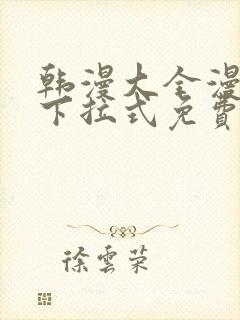 韩漫大全漫
下拉式免費
徐雲荣